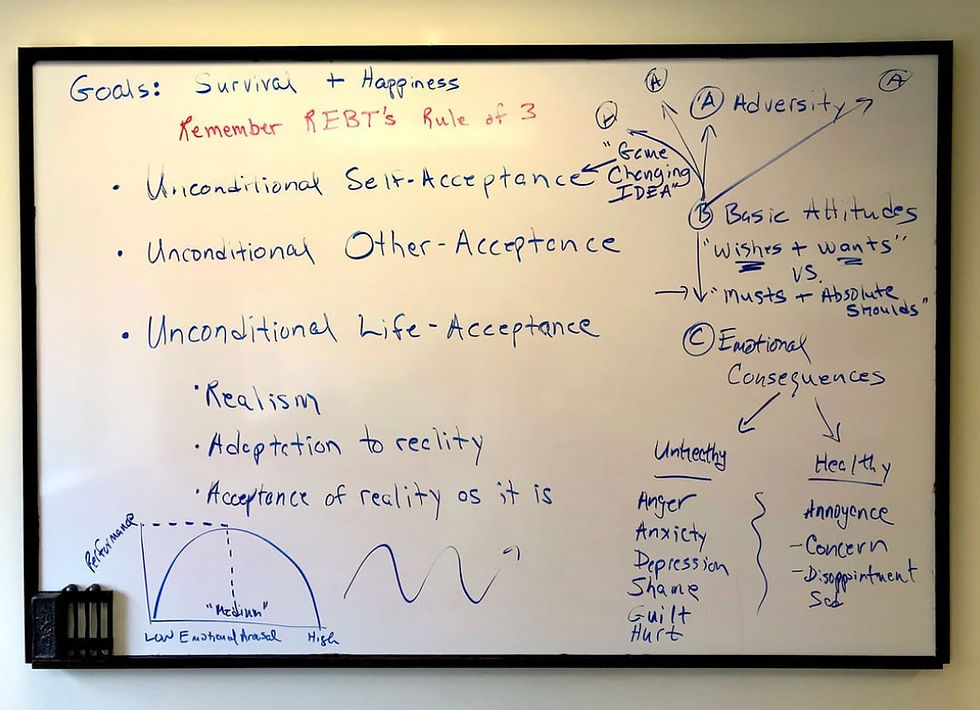 Goals: Survival + Happiness
Remember REBT's Rule of 3
• Unconditional Self-Acceptance
• Unconditional Other-Acceptance
• Unconditional Life-Acceptance
• Realism
• Adaptation to reality
• Acceptance of reality as it is
Performance
"Medium"
Low Emotional Arasal High
A
A
A Adversity
"Game
Changing
IDEA"
B Basic Attitudes
"Wishes + Wants"
VS.
"Musts + Absolute
Shoulds"
C Emotional
Consequences
Unhealthy
Anger
Anxiety
Depression
Shame
Guilt
Hurt
Healthy
Annoyance
- Concern
- Disappointment
Sad